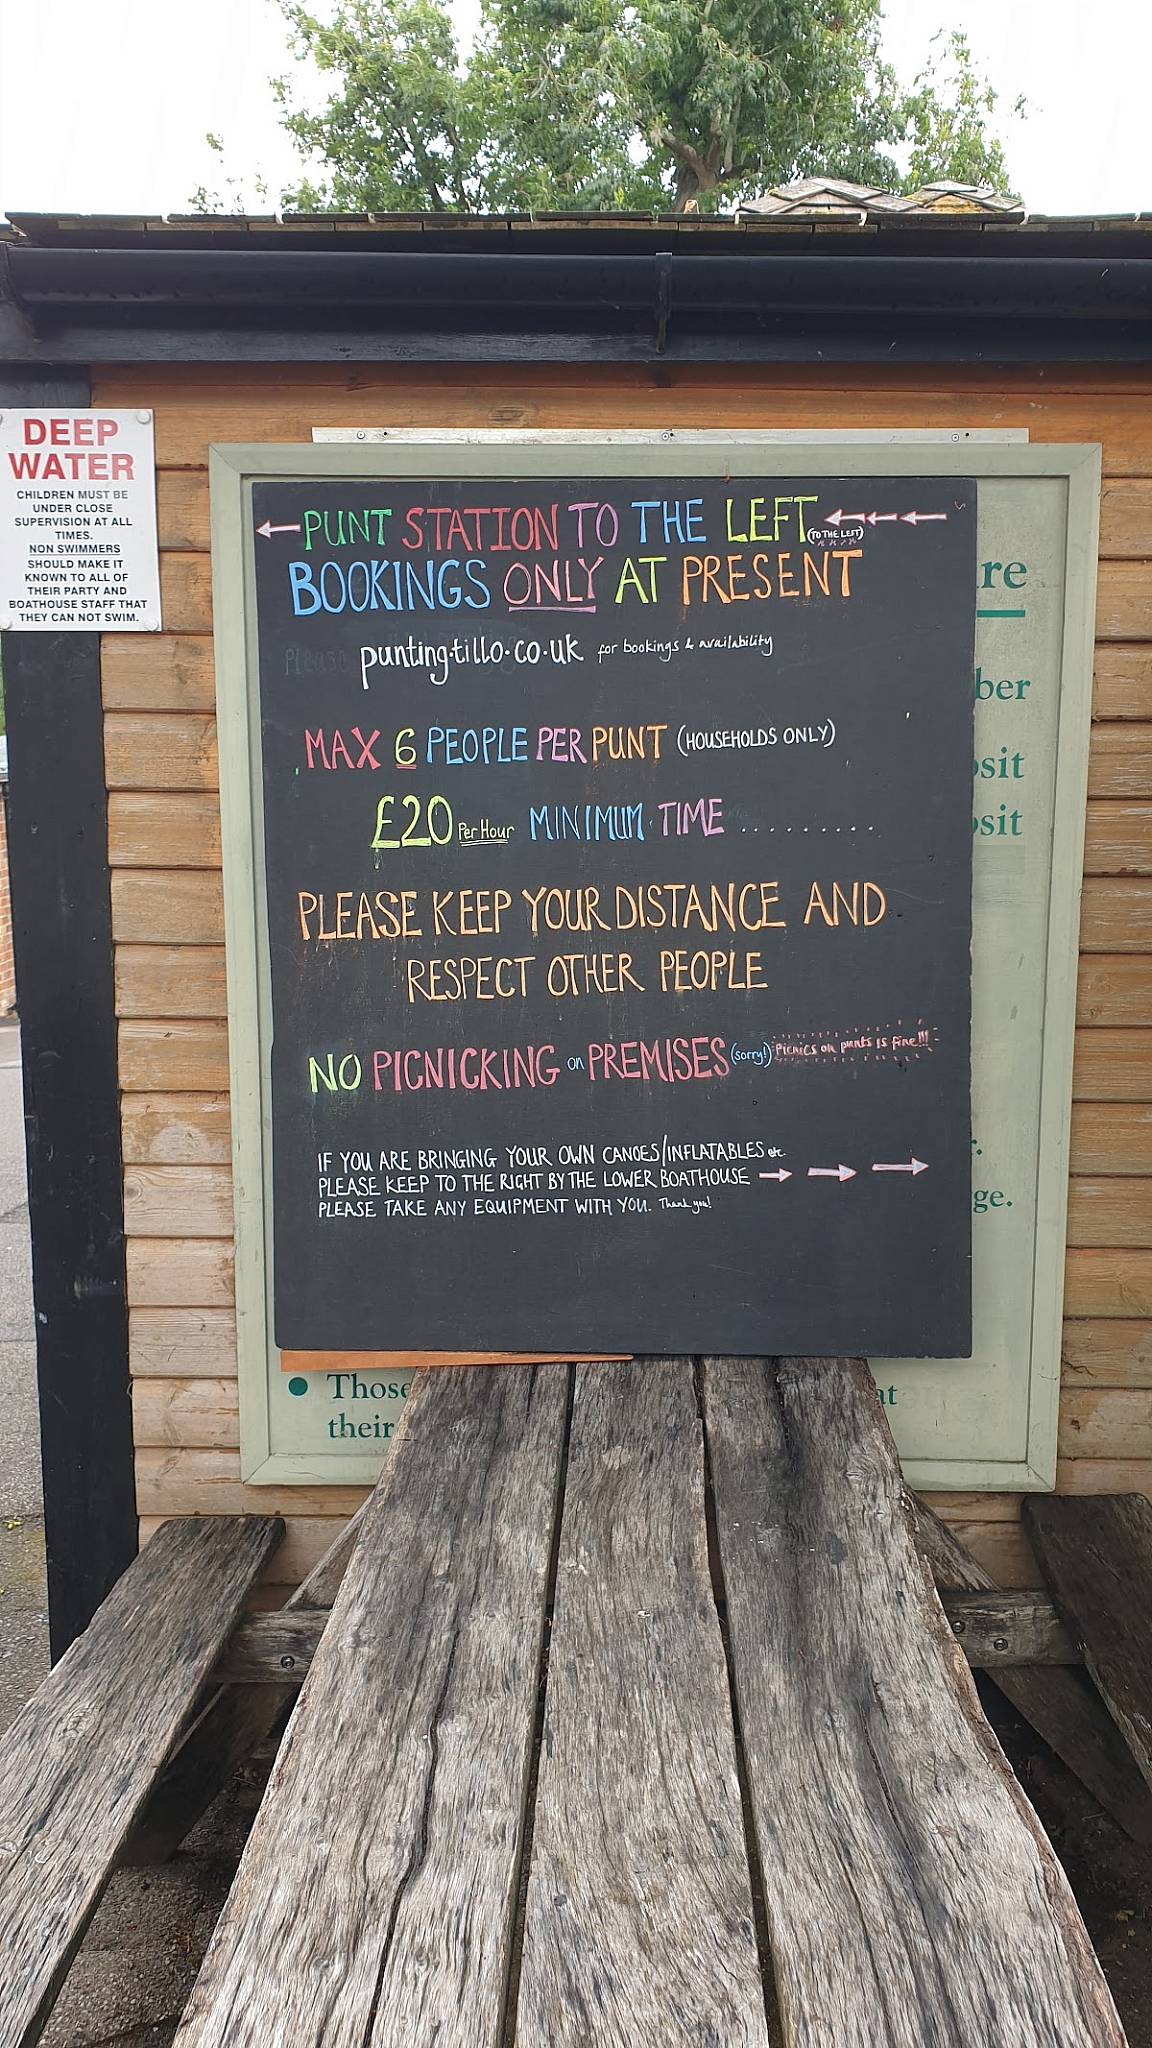 DEEP
WATER
CHILDREN MUST BE
UNDER CLOSE
SUPERVISION AT ALL
TIMES.
NON SWIMMERS
SHOULD MAKE IT
KNOWN TO ALL OF
THEIR PARTY AND
BOATHOUSE STAFF THAT
THEY CAN NOT SWIM.
PUNT STATION TO THE LEFT
(TO THE LEFT)
BOOKINGS ONLY AT PRESENT
Please punting.tillo.co.uk for bookings & availability
MAX 6 PEOPLE PER PUNT (HOUSEHOLDS ONLY)
£20 Per Hour MINIMUM TIME .........
PLEASE KEEP YOUR DISTANCE AND
RESPECT OTHER PEOPLE
NO PICNICKING on PREMISES (sorry!) Picnics on punts is fine!!!
IF YOU ARE BRINGING YOUR OWN CANOES/INFLATABLES etc.
PLEASE KEEP TO THE RIGHT BY THE LOWER BOATHOUSE
PLEASE TAKE ANY EQUIPMENT WITH YOU. Thank you!
re
ber
osit
osit
ge.
• Those at
their